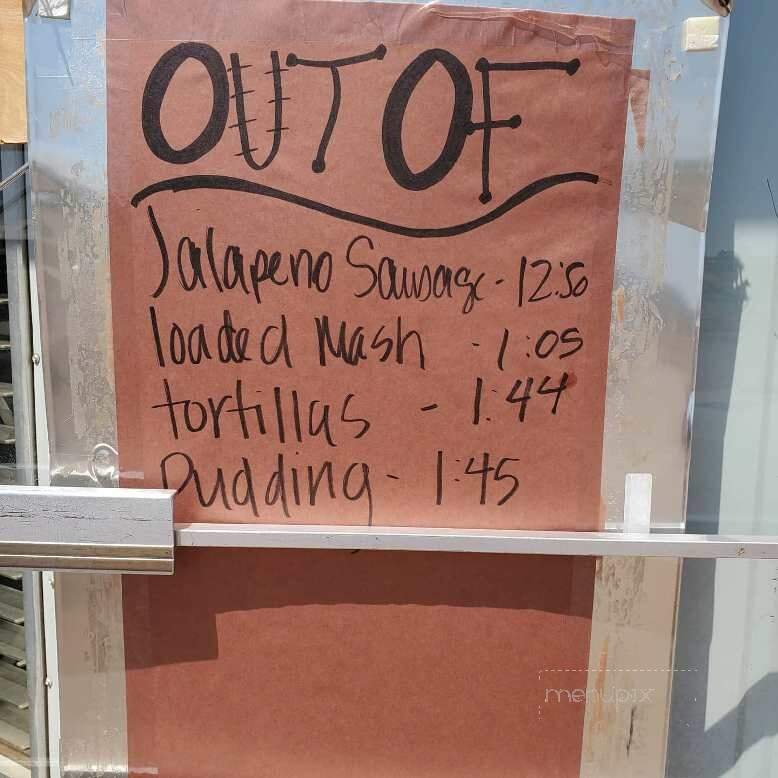 OUT OF
Jalapeno Sausage - 12:50
loaded Mash - 1:05
tortillas - 1:44
Pudding - 1:45
menupix